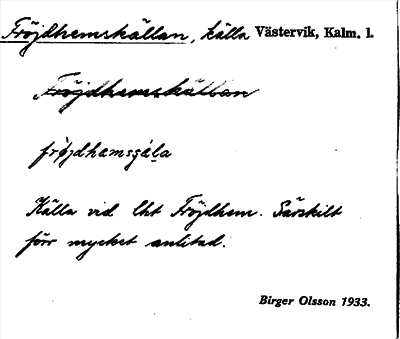 Fröjdhemskällan, källa Västervik, Kalm. l.
Fröjdhemskällan
frøjdhæmsçä̀la
Källa vid lht Fröjdhem. Särskilt
förr mycket anlitad.
Birger Olsson 1933.